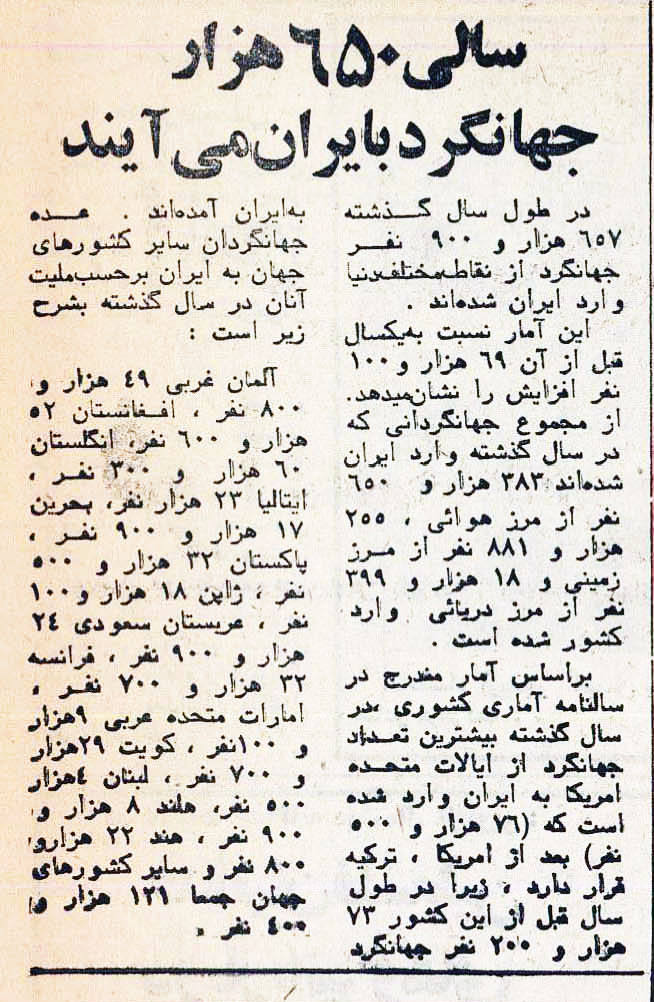 سالی ٦٥٠ هزار
جهانگرد بایران می آیند
در طول سال گذشته
٦٥٧ هزار و ٩٠٠ نفر
جهانگرد از نقاط مختلف دنیا
وارد ایران شده‌اند .
این آمار نسبت به یکسال
قبل از آن ٦٩ هزار و ١٠٠
نفر افزایش را نشان میدهد.
از مجموع جهانگردانی که
در سال گذشته وارد ایران
شده‌اند ٣٨٣ هزار و ٦٥٠
نفر از مرز هوائی ، ٢٥٥
هزار و ٨٨١ نفر از مرز
زمینی و ١٨ هزار و ٣٩٩
نفر از مرز دریائی وارد
کشور شده است .
براساس آمار مندرج در
سالنامه آماری کشوری ،در
سال گذشته بیشترین تعداد
جهانگرد از ایالات متحده
امریکا به ایران وارد شده
است که (٧٦ هزار و ٥٠٠
نفر) بعد از امریکا ، ترکیه
قرار دارد ، زیرا در طول
سال قبل از این کشور ٧٣
هزار و ٢٠٠ نفر جهانگرد
به‌ایران آمده‌اند . عده
جهانگردان سایر کشورهای
جهان به ایران برحسب ملیت
آنان در سال گذشته بشرح
زیر است :
آلمان غربی ٤٩ هزار و
٨٠٠ نفر ، افغانستان ٥٢
هزار و ٦٠٠ نفر، انگلستان
٦٠ هزار و ٣٠٠ نفر ،
ایتالیا ٢٣ هزار نفر، بحرین
١٧ هزار و ٩٠٠ نفر ،
پاکستان ٣٢ هزار و ٥٠٠
نفر ، ژاپن ١٨ هزار و ١٠٠
نفر ، عربستان سعودی ٢٤
هزار و ٩٠٠ نفر ، فرانسه
٣٢ هزار و ٧٠٠ نفر ،
امارات متحده عربی ٩هزار
و ١٠٠نفر ، کویت ٢٩هزار
و ٧٠٠ نفر ، لبنان ٤هزار
٥٠٠ نفر، هلند ٨ هزار و
٩٠٠ نفر ، هند ٢٢ هزارو
٨٠٠ نفر و سایر کشورهای
جهان جمعا ١٢١ هزار و
٤٠٠ نفر .